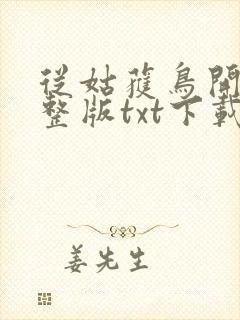 從姑獲鳥開
整版txt下載
姜先生